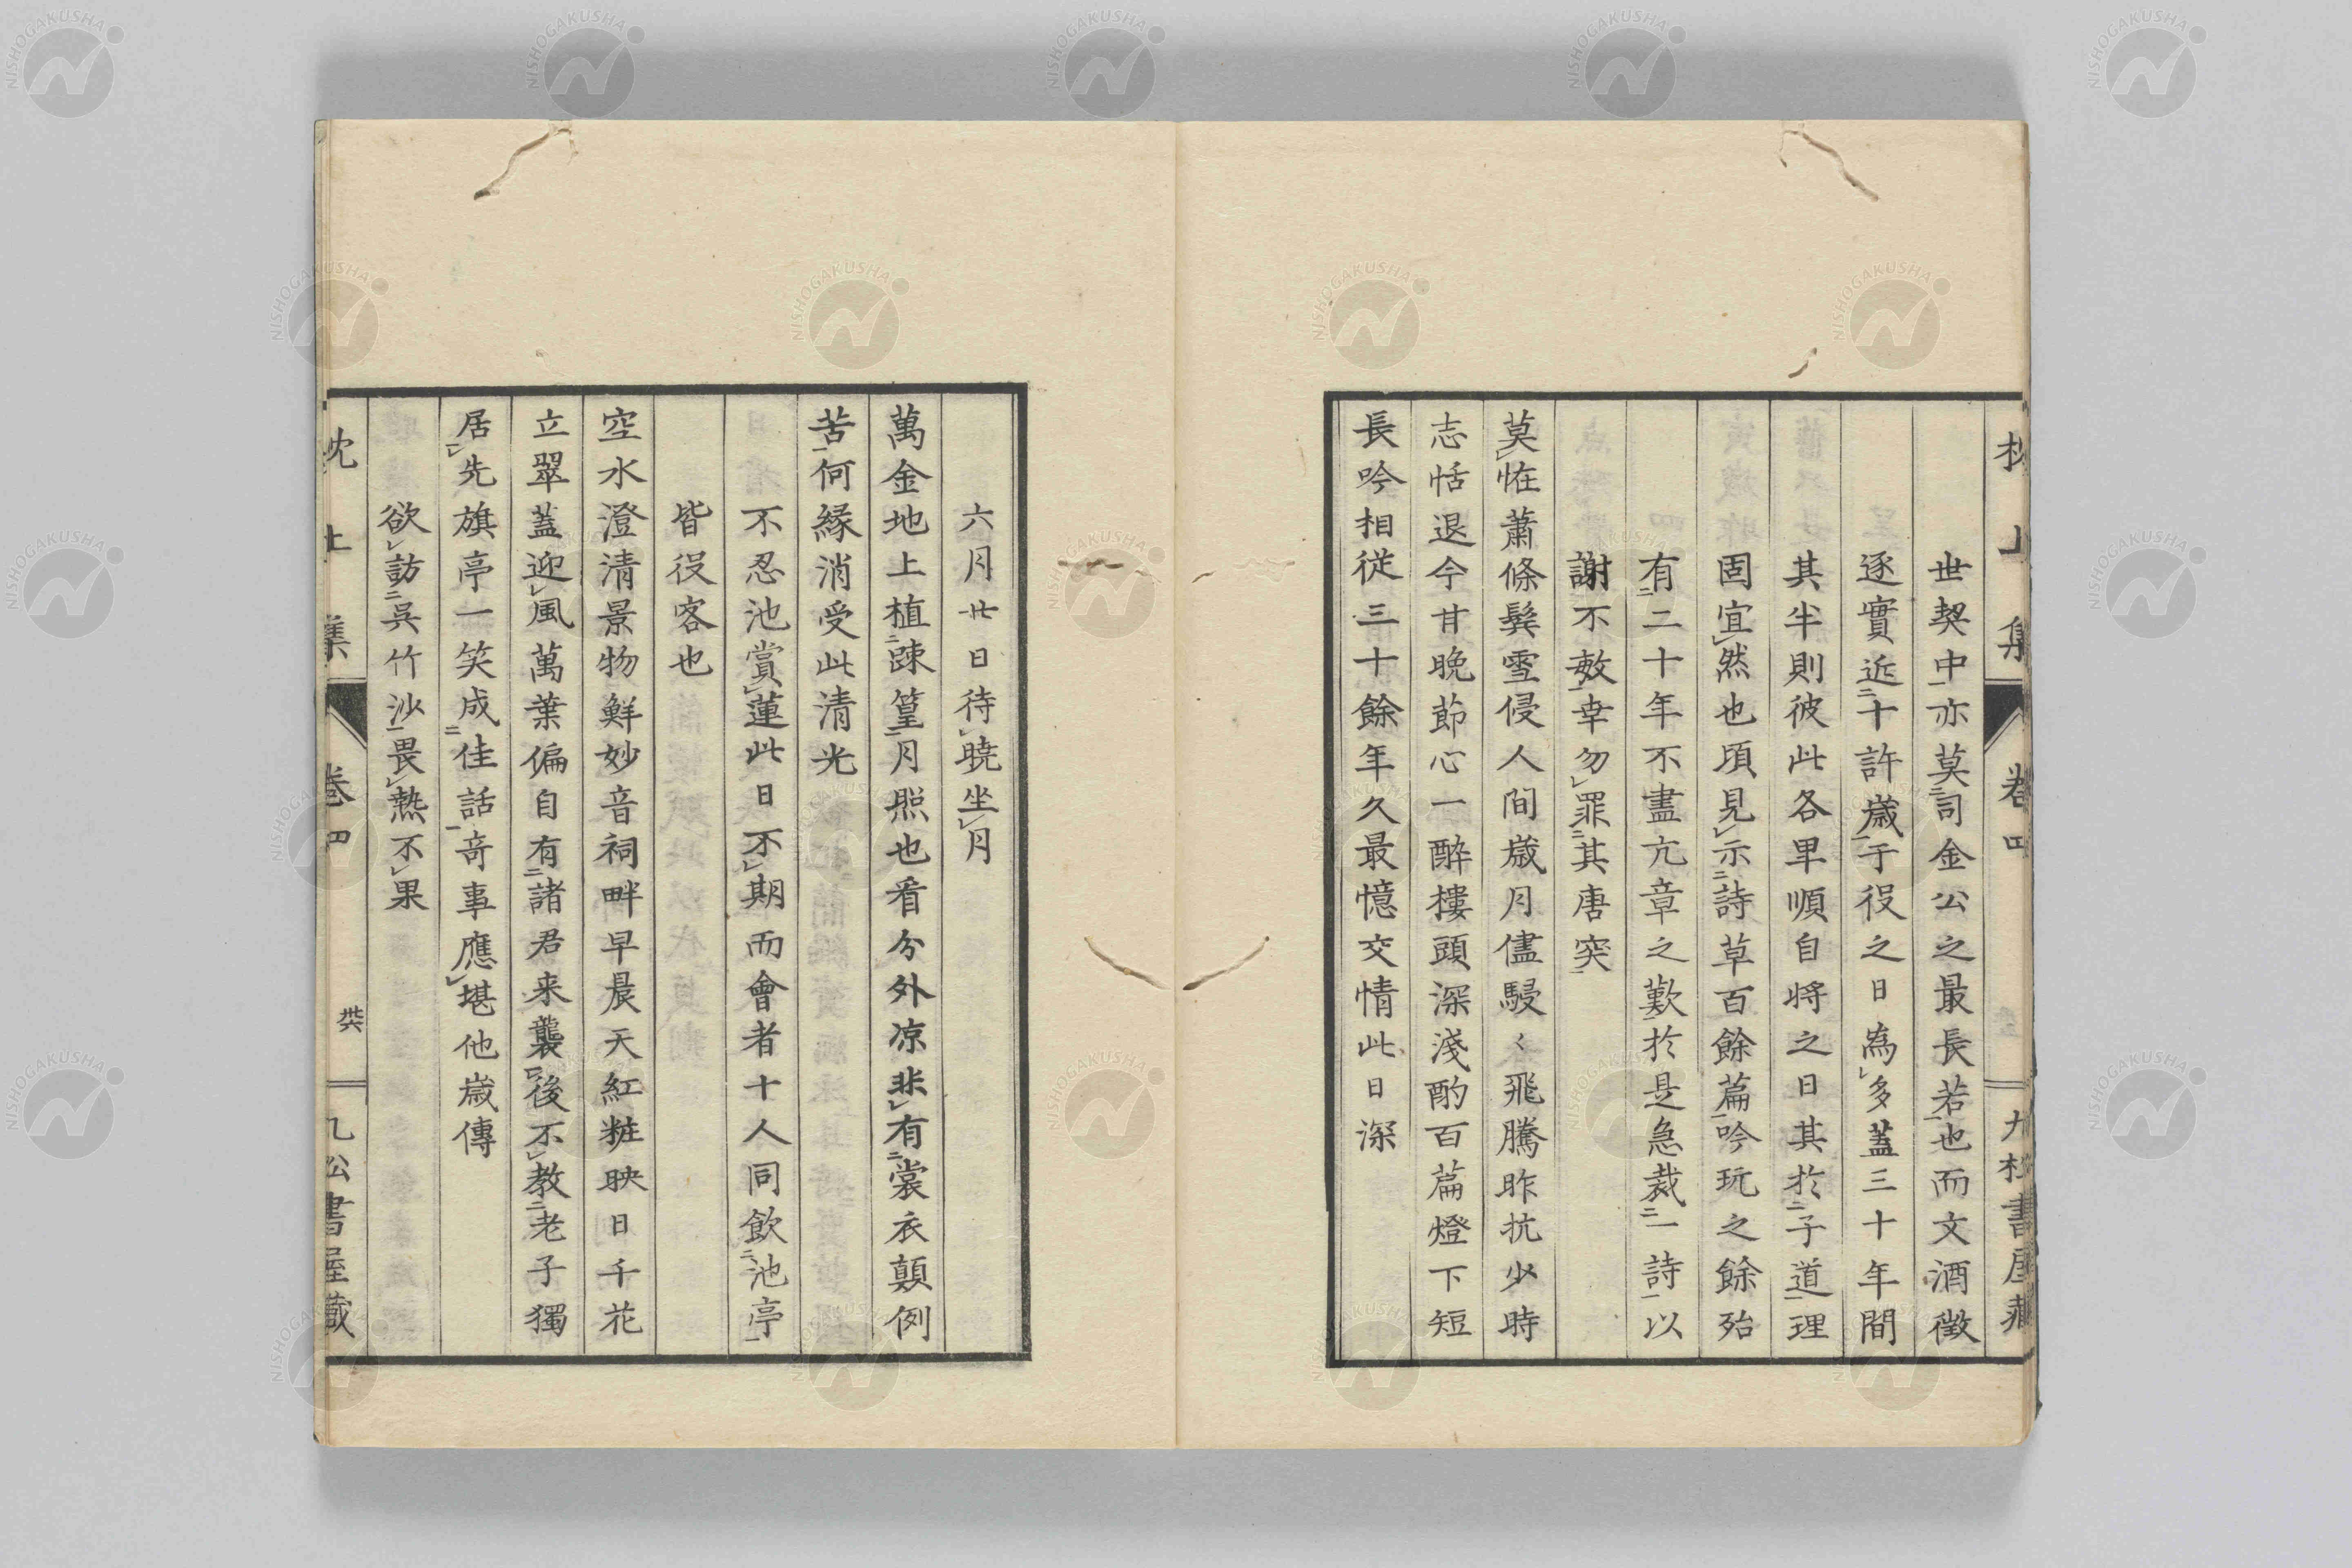 世契中亦莫司金公之最長若也而文酒徵
逐實近十許歳于役之日為多蓋三十年間
其半則彼此各早順自將之日其於子道理
固宜然也頃見示詩草百餘篇吟玩之餘殆
有二十年不盡亢章之歎於是急裁一詩以
謝不敏幸勿罪其唐突
莫恠蕭條鬂雪侵人間歳月儘駸〻飛騰昨抗少時
志恬退今甘晩節心一醉樓頭深淺酌百篇燈下短
長吟相従三十餘年久最憶交情此日深
六月廿日待曉坐月
萬金地上植踈篁月照也看分外凉非有裳衣顛例
苦何緣消受此清光
不忍池賞蓮此日不期而會者十人同飲池亭
皆役客也
空水澄清景物鮮妙音祠畔早晨天紅粧映日千花
立翠蓋迎風萬葉偏自有諸君来襲後不教老子獨
居先旗亭一笑成佳話竒事應堪他歳傳
欲訪呉竹沙畏熱不果
枕上集 卷四 九松書屋藏
NISHOGAKUSHA